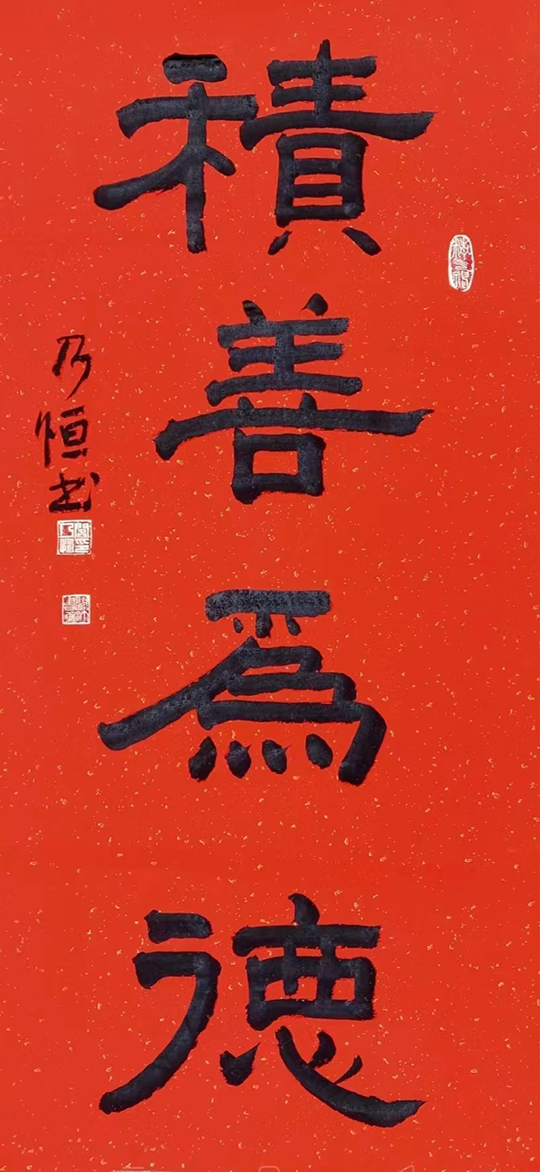 積善為德
乃恒书